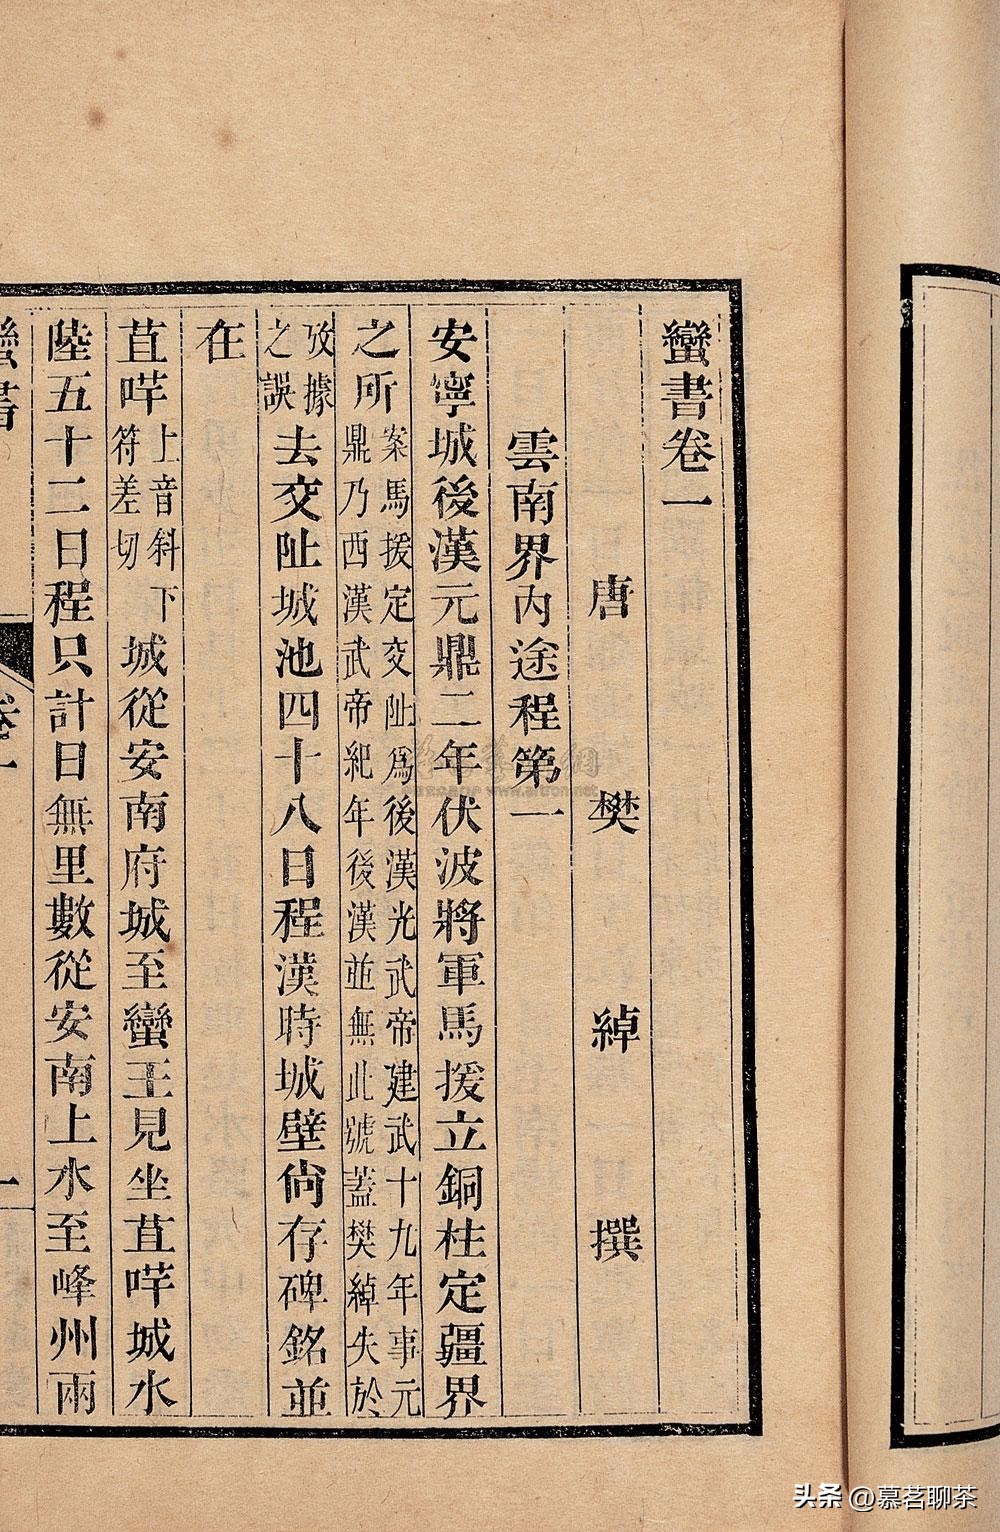 蠻書卷一
唐樊綽撰
雲南界內途程第一
安寧城後漢元鼎二年伏波將軍馬援立銅柱定疆界
之所案馬援定交阯爲後漢光武帝建武十九年事元鼎乃西漢武帝紀年後漢並無此號蓋樊綽失於
攷據之誤去交阯城池四十八日程漢時城壁尙存碑銘並
在
苴咩上音斜下符差切城從安南府城至蠻王見坐苴咩城水
陸五十二日程只計日無里數從安南上水至峰州兩
蠻書
卷一
一
www.artron.net
头条 @慕茗聊茶